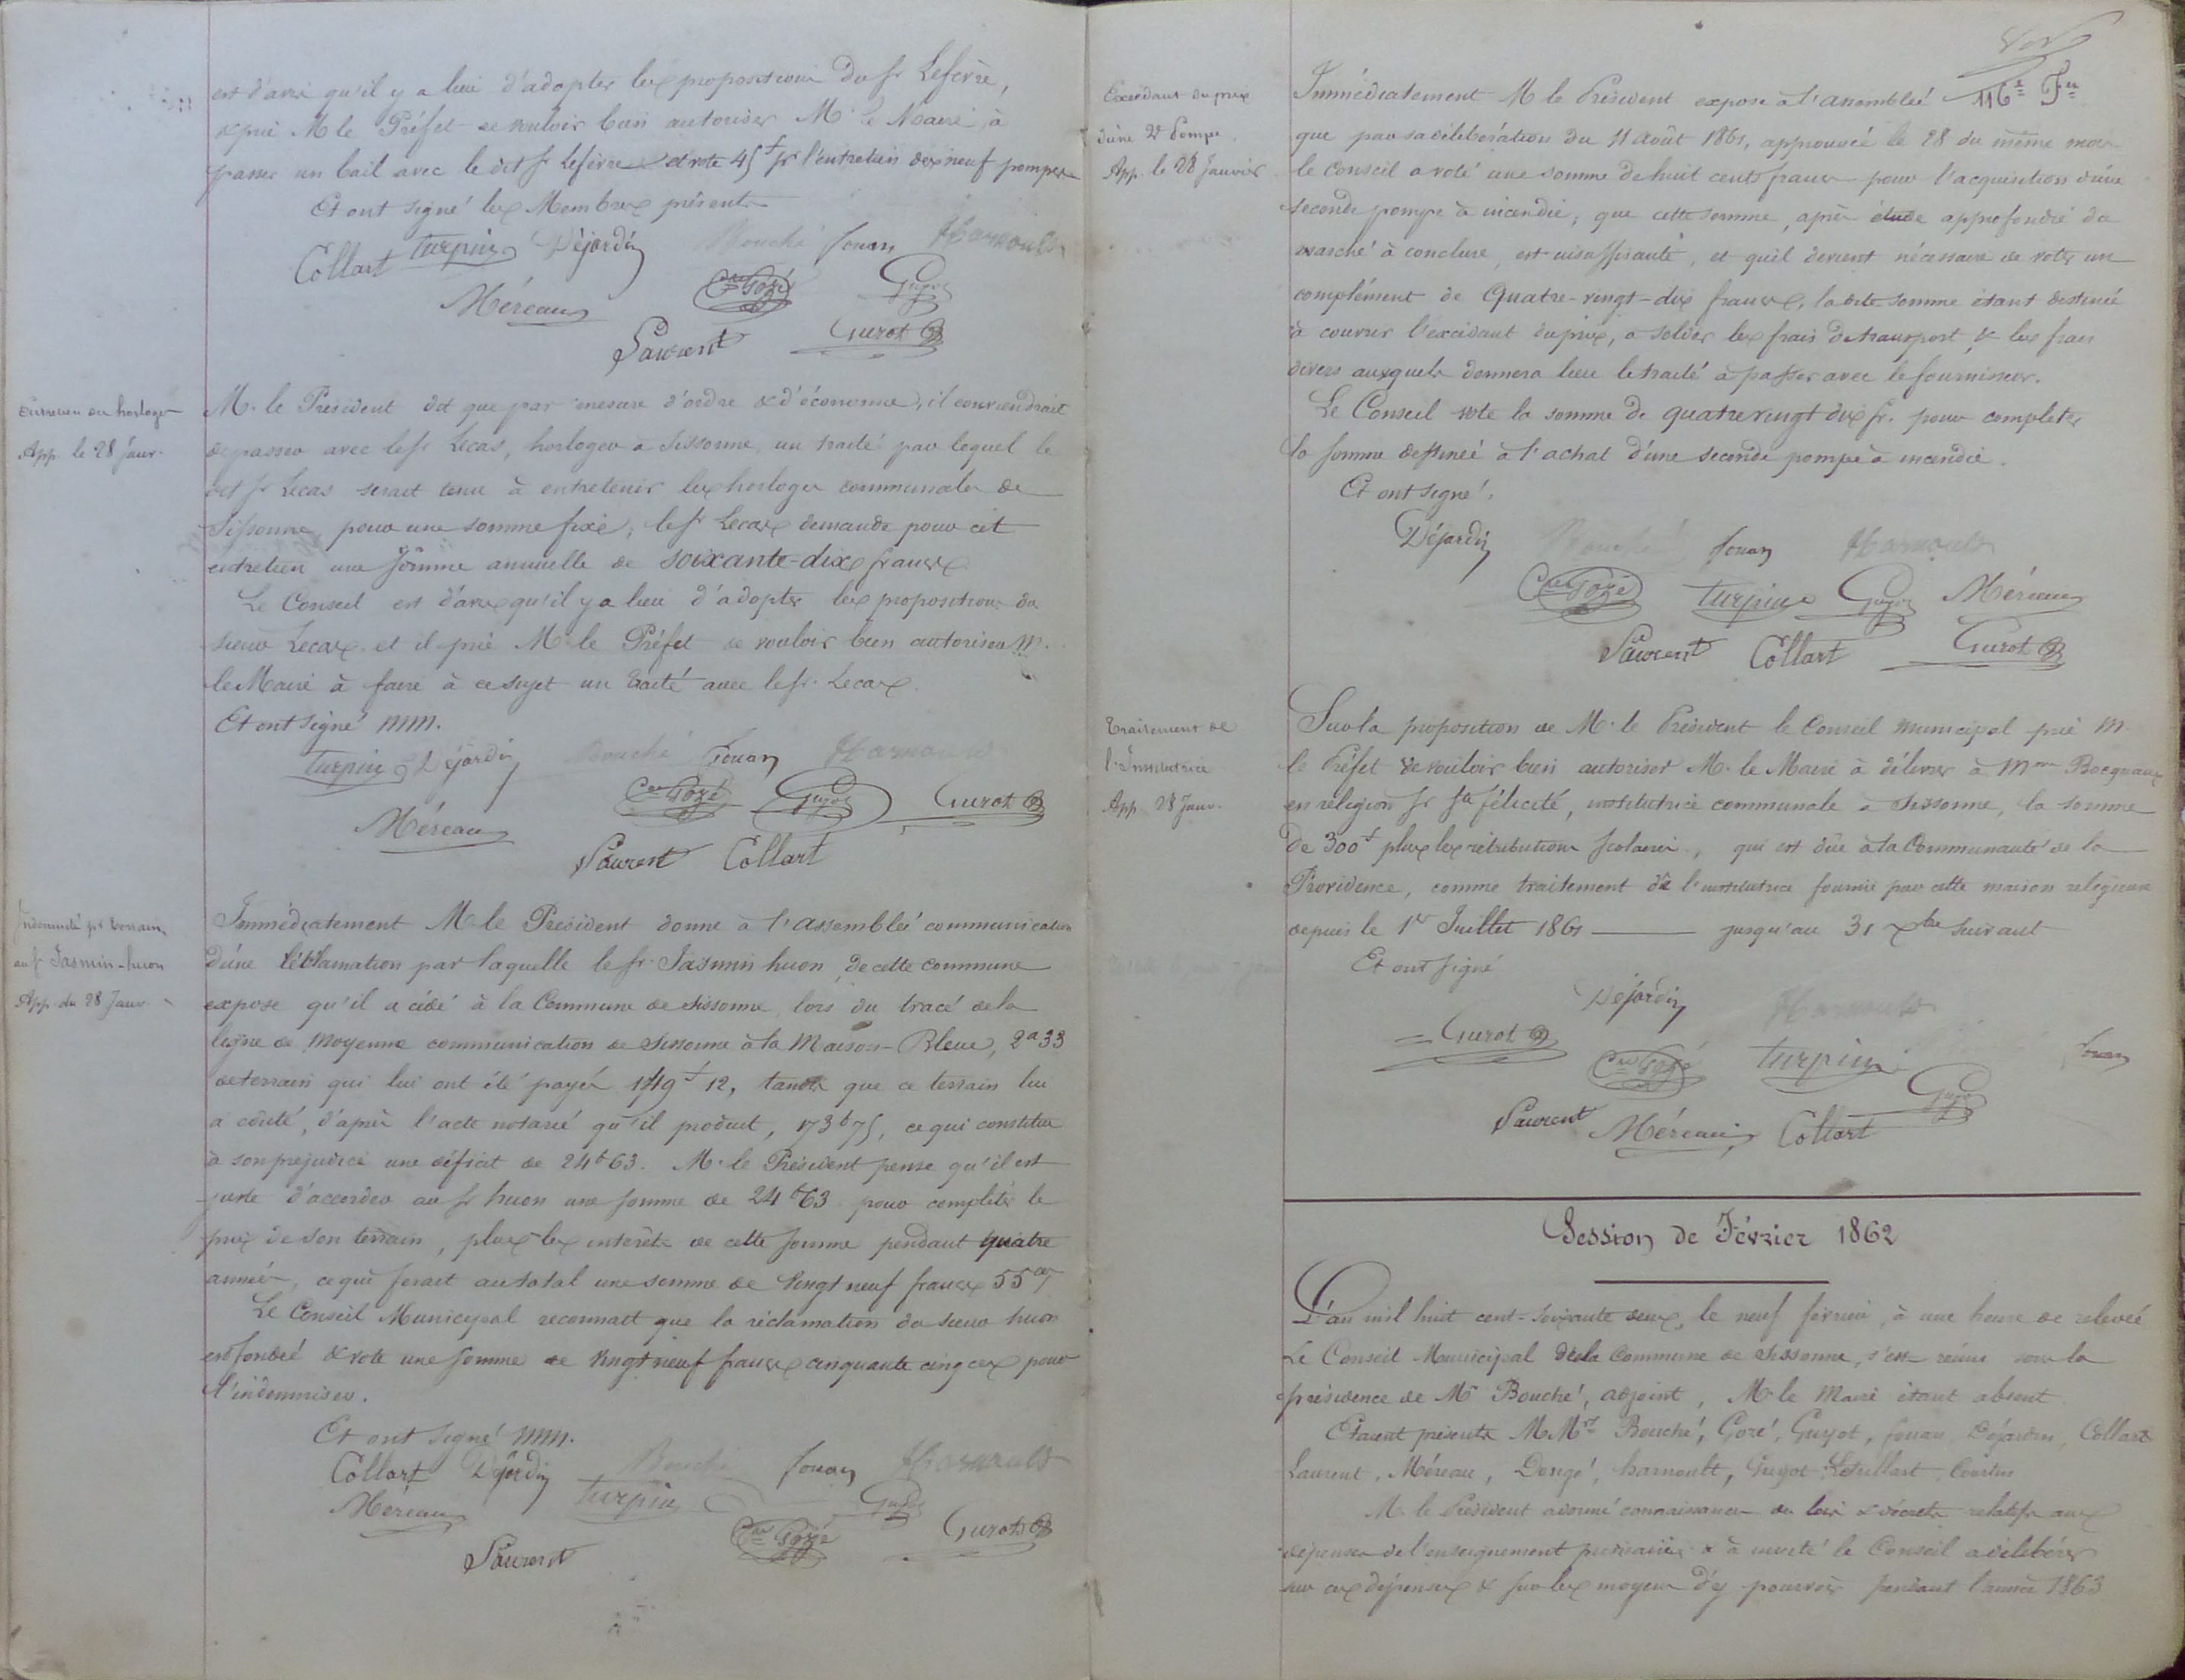 est d'avis qu'il y a lieu d'adopter les propositions du sr Lefèvre,
& prie M le Préfet de vouloir bien autoriser M. le Maire à
passer un bail avec le dit sr Lefèvre et vote 45f pr l'entretien des neuf pompes
Et ont signé les Membres présents
Collart Turpin Déjardin Bouché fouan Harnoult
Méreau Cer Gozé Guyot
Laurent Gurot
Entretien des horloges
App. le 28 Janv.
M. le Président dit que par mesure d'ordre & d'économie, il conviendrait
de passer avec le sr Lecas, horloger à Sissonne, un traité par lequel le
dit sr Lecas serait tenu à entretenir les horloges communales de
Sissonne, pour une somme fixe; le sr Lecas demande pour cet
entretien une somme annuelle de soixante-dix francs
Le Conseil est d'avis qu'il y a lieu d'adopter les propositions du
sieur Lecas et il prie M. le Préfet de vouloir bien autoriser M.
le Maire à faire à ce sujet un traité avec le sr. Lecas.
Et ont signé MM.
Turpin Déjardin Bouché fouan Harnoult
Méreau Cer Gozé Guyot Gurot
Laurent Collart
Indemnité pr terrain
au sr Jasmin-huon
App. du 28 Janv.
Immédiatement M. le Président donne à l'assemblée communication
d'une réclamation par laquelle le sr. Jasmin huon, de cette commune
expose qu'il a cédé à la Commune de Sissonne, lors du tracé de la
ligne de moyenne communication de Sissonne à la Maison-Bleue, 2a33
de terrain qui lui ont été payés 149f 12, tandis que ce terrain lui
a coûté, d'après l'acte notarié qu'il produit, 173f75, ce qui constitue
à son préjudice un déficit de 24f63. M. le Président pense qu'il est
juste d'accorder au sr huon une somme de 24f63 pour compléter le
prix de son terrain, plus les intérêts de cette somme pendant quatre
années, ce qui ferait au total une somme de Vingt neuf francs 55 ces
Le Conseil Municipal reconnaît que la réclamation du sieur huon
est fondée & vote une somme de vingt neuf francs cinquante cinq ces pour
l'indemniser.
Et ont signé MM.
Collart Déjardin Bouché fouan Harnoult
Mereau Turpin Guyot
Cer Gozé Gurot
Laurent
116e Fet
Excédant du prix
d'une 2e Pompe
App. le 28 Janvier
Immédiatement M le Président expose à l'assemblée
que par sa délibération du 11 Août 1861, approuvée le 28 du même mois
le Conseil a voté une somme de huit cents francs pour l'acquisition d'une
seconde pompe à incendie; que cette somme, après étude approfondie du
marché à conclure, est insuffisante, et qu'il devient nécessaire de voter un
complément de Quatre-vingt-dix francs, la dite somme étant destinée
à couvrir l'excédant du prix, à solder les frais de transport & les frais
divers auxquels donnera lieu le traité à passer avec le fournisseur.
Le Conseil vote la somme de quatre vingt dix fr. pour compléter
la somme destinée à l'achat d'une seconde pompe à incendie.
Et ont signé.
Déjardin Bouché fouan Harnoult
Cer Gozé Turpin Guyot Méreau
Laurent Collart Gurot
Traitement de
l'Institutrice
App. 28 Janv.
Sur la proposition de M. le Président le Conseil municipal prie M.
le Préfet de vouloir bien autoriser M. le Maire à délivrer à Mme Bocquaux
en religion sr Ste félicité, institutrice communale à Sissonne, la somme
de 300f plus les rétributions scolaires, qui est dûe à la Communauté de la
Providence, comme traitement de l'institutrice fournie par cette maison religieuse
depuis le 1er Juillet 1861 ——— jusqu'au 31 Xbre suivant
Et ont signé
Déjardin Harnoult
Gurot Cer Gozé Turpin fouan
Guyot
Laurent Méreau Collart
Session de Février 1862
L'an mil huit cent-soixante deux, le neuf février, à une heure de relevée
Le Conseil Municipal de la Commune de Sissonne, s'est réuni sous la
présidence de Mr Bouché, adjoint, M. le Maire étant absent
Etaient présents M.Mrs Bouché, Gozé, Guyot, fouan Déjardin, Collart
Laurent, Méreau, Dongé, harnoult, Guyot-Létellart, Courtin
M. le Président a donné connaissance des lois & décrets relatifs aux
dépenses de l'enseignement primaire & a invité le Conseil à délibérer
sur ces dépenses & sur les moyens d'y pourvoir pendant l'année 1863